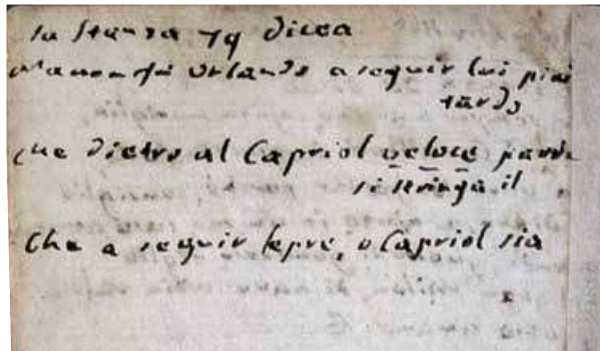 la stanza 79 dicea
Ma non fu Orlando a seguir lui piu
tardo
che dietro al Capriol veloce pardo
si stringa il
Che a seguir lepre, o Capriol sia